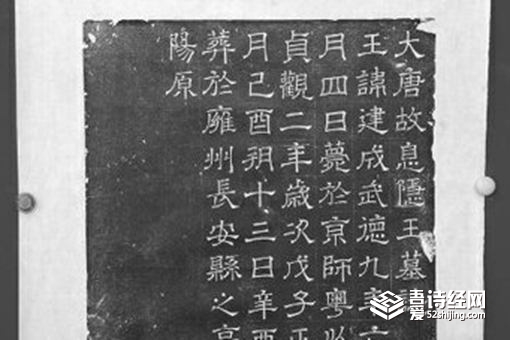 大唐故息隱王墓
王諱建成武德九年六
月四日薨於京師粤以
貞觀二年歲次戊子正
月己酉朔十三日辛酉
葬於雍州長安縣之高
陽原
吾爱诗经网
52shijing.com